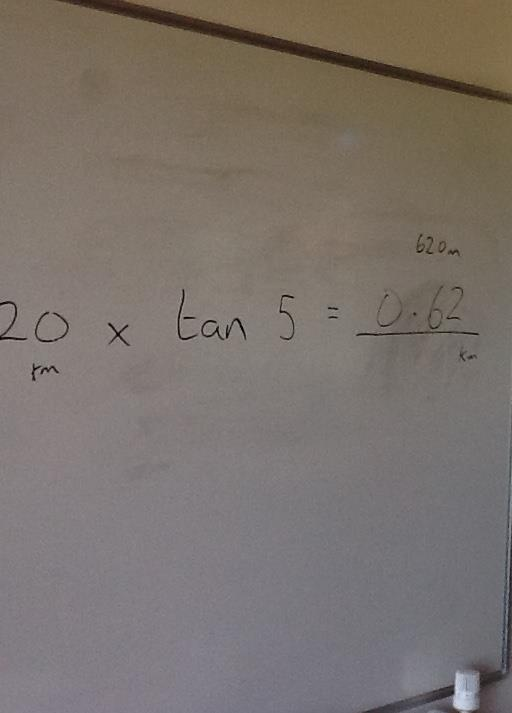 620m
20 x tan 5 = 0.62
km km